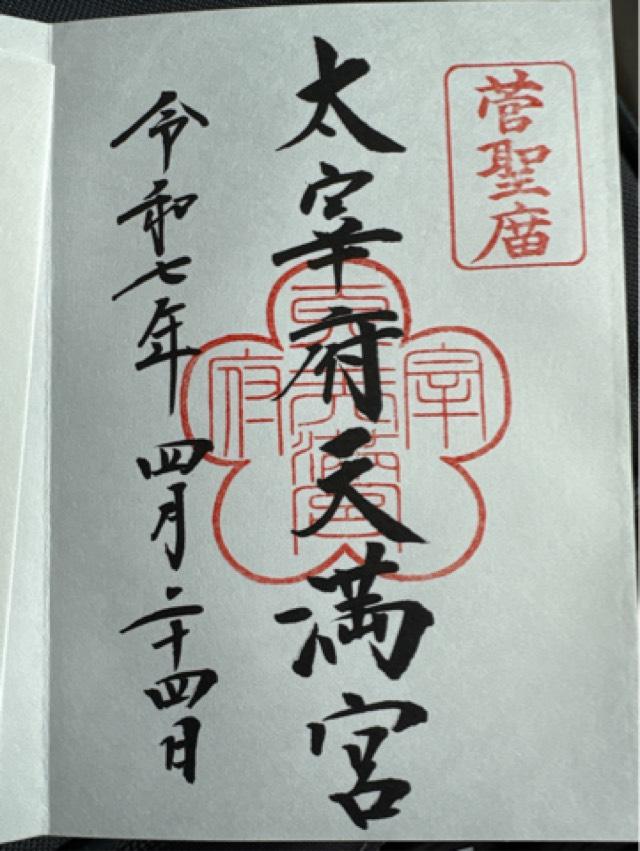 菅聖庿
太宰府天満宮
令和七年四月二十四日
宰
府